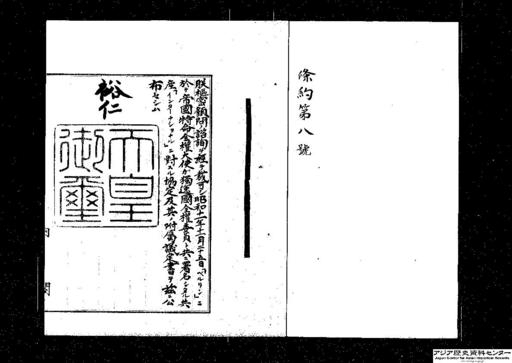 條約第八號
朕樞密顧問ノ諮詢ヲ經テ裁可シ昭和十一年十一月二十五日「ベルリン」ニ
於テ帝國特命全權大使ガ獨逸國全權委員ト共ニ署名シタル共
産「インターナショナル」ニ對スル協定及其ノ附屬議定書ヲ茲ニ公
布セシム
裕仁
天皇御璽
内閣
アジア歴史資料センター
Japan Center for Asian Historical Records